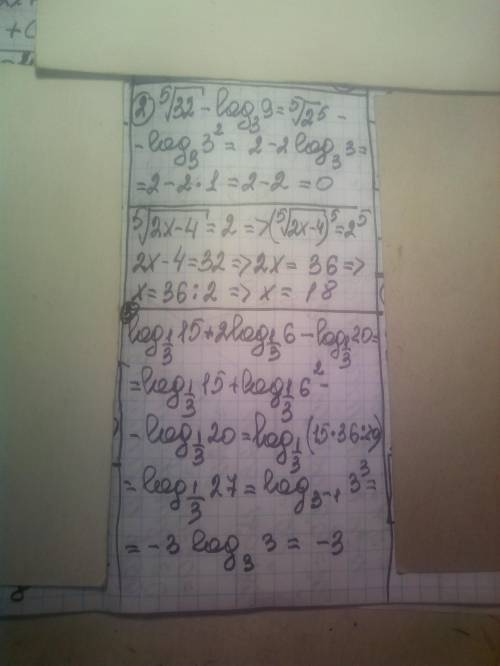 ② ⁵√32 - log₃9 = ⁵√2⁵ -
- log₃3² = 2 - 2log₃3 =
= 2 - 2·1 = 2 - 2 = 0
⁵√2x-4 = 2 => (⁵√2x-4)⁵ = 2⁵
2x - 4 = 32 => 2x = 36 =>
x = 36 : 2 => x = 18
log_{1/3} 15 + 2log_{1/3} 6 - log_{1/3} 20 =
= log_{1/3} 15 + log_{1/3} 6² -
- log_{1/3} 20 = log_{1/3} (15·36:20)
= log_{1/3} 27 = log_{3⁻¹} 3³ =
= -3 log₃ 3 = -3